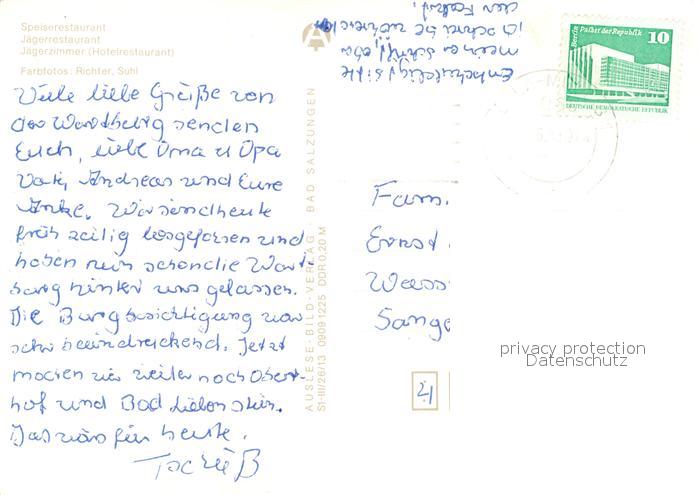 Speiserestaurant
Jägerrestaurant
Jägerzimmer (Hotelrestaurant)
Farbfotos: Richter, Suhl
Viele liebe Grüße von
der Wartburg senden
Euch, liebe Oma u Opa
Vati, Andreas und Eure
Anke. Wir sind heute
früh zeitig losgefahren und
haben nun schon die Wart-
burg hinter uns gelassen.
Die Burgbesichtigung war
sehr beeindruckend. Jetzt
machen wir weiter nach Ober-
hof und Bad Liebenstein.
Das wärs für heute.
Tschüß
Entschuldigt bitte
meine Schrift, aber
ich schreibe während
der Fahrt.
AUSLESE-BILD-VERLAG BAD SALZUNGEN
S1-III/26/13 09091225 DDR 0,20 M
Berlin Palast der Republik
10
DEUTSCHE DEMOKRATISCHE REPUBLIK
Fam.
Ernst
Wass
Sange
privacy protection
Datenschutz